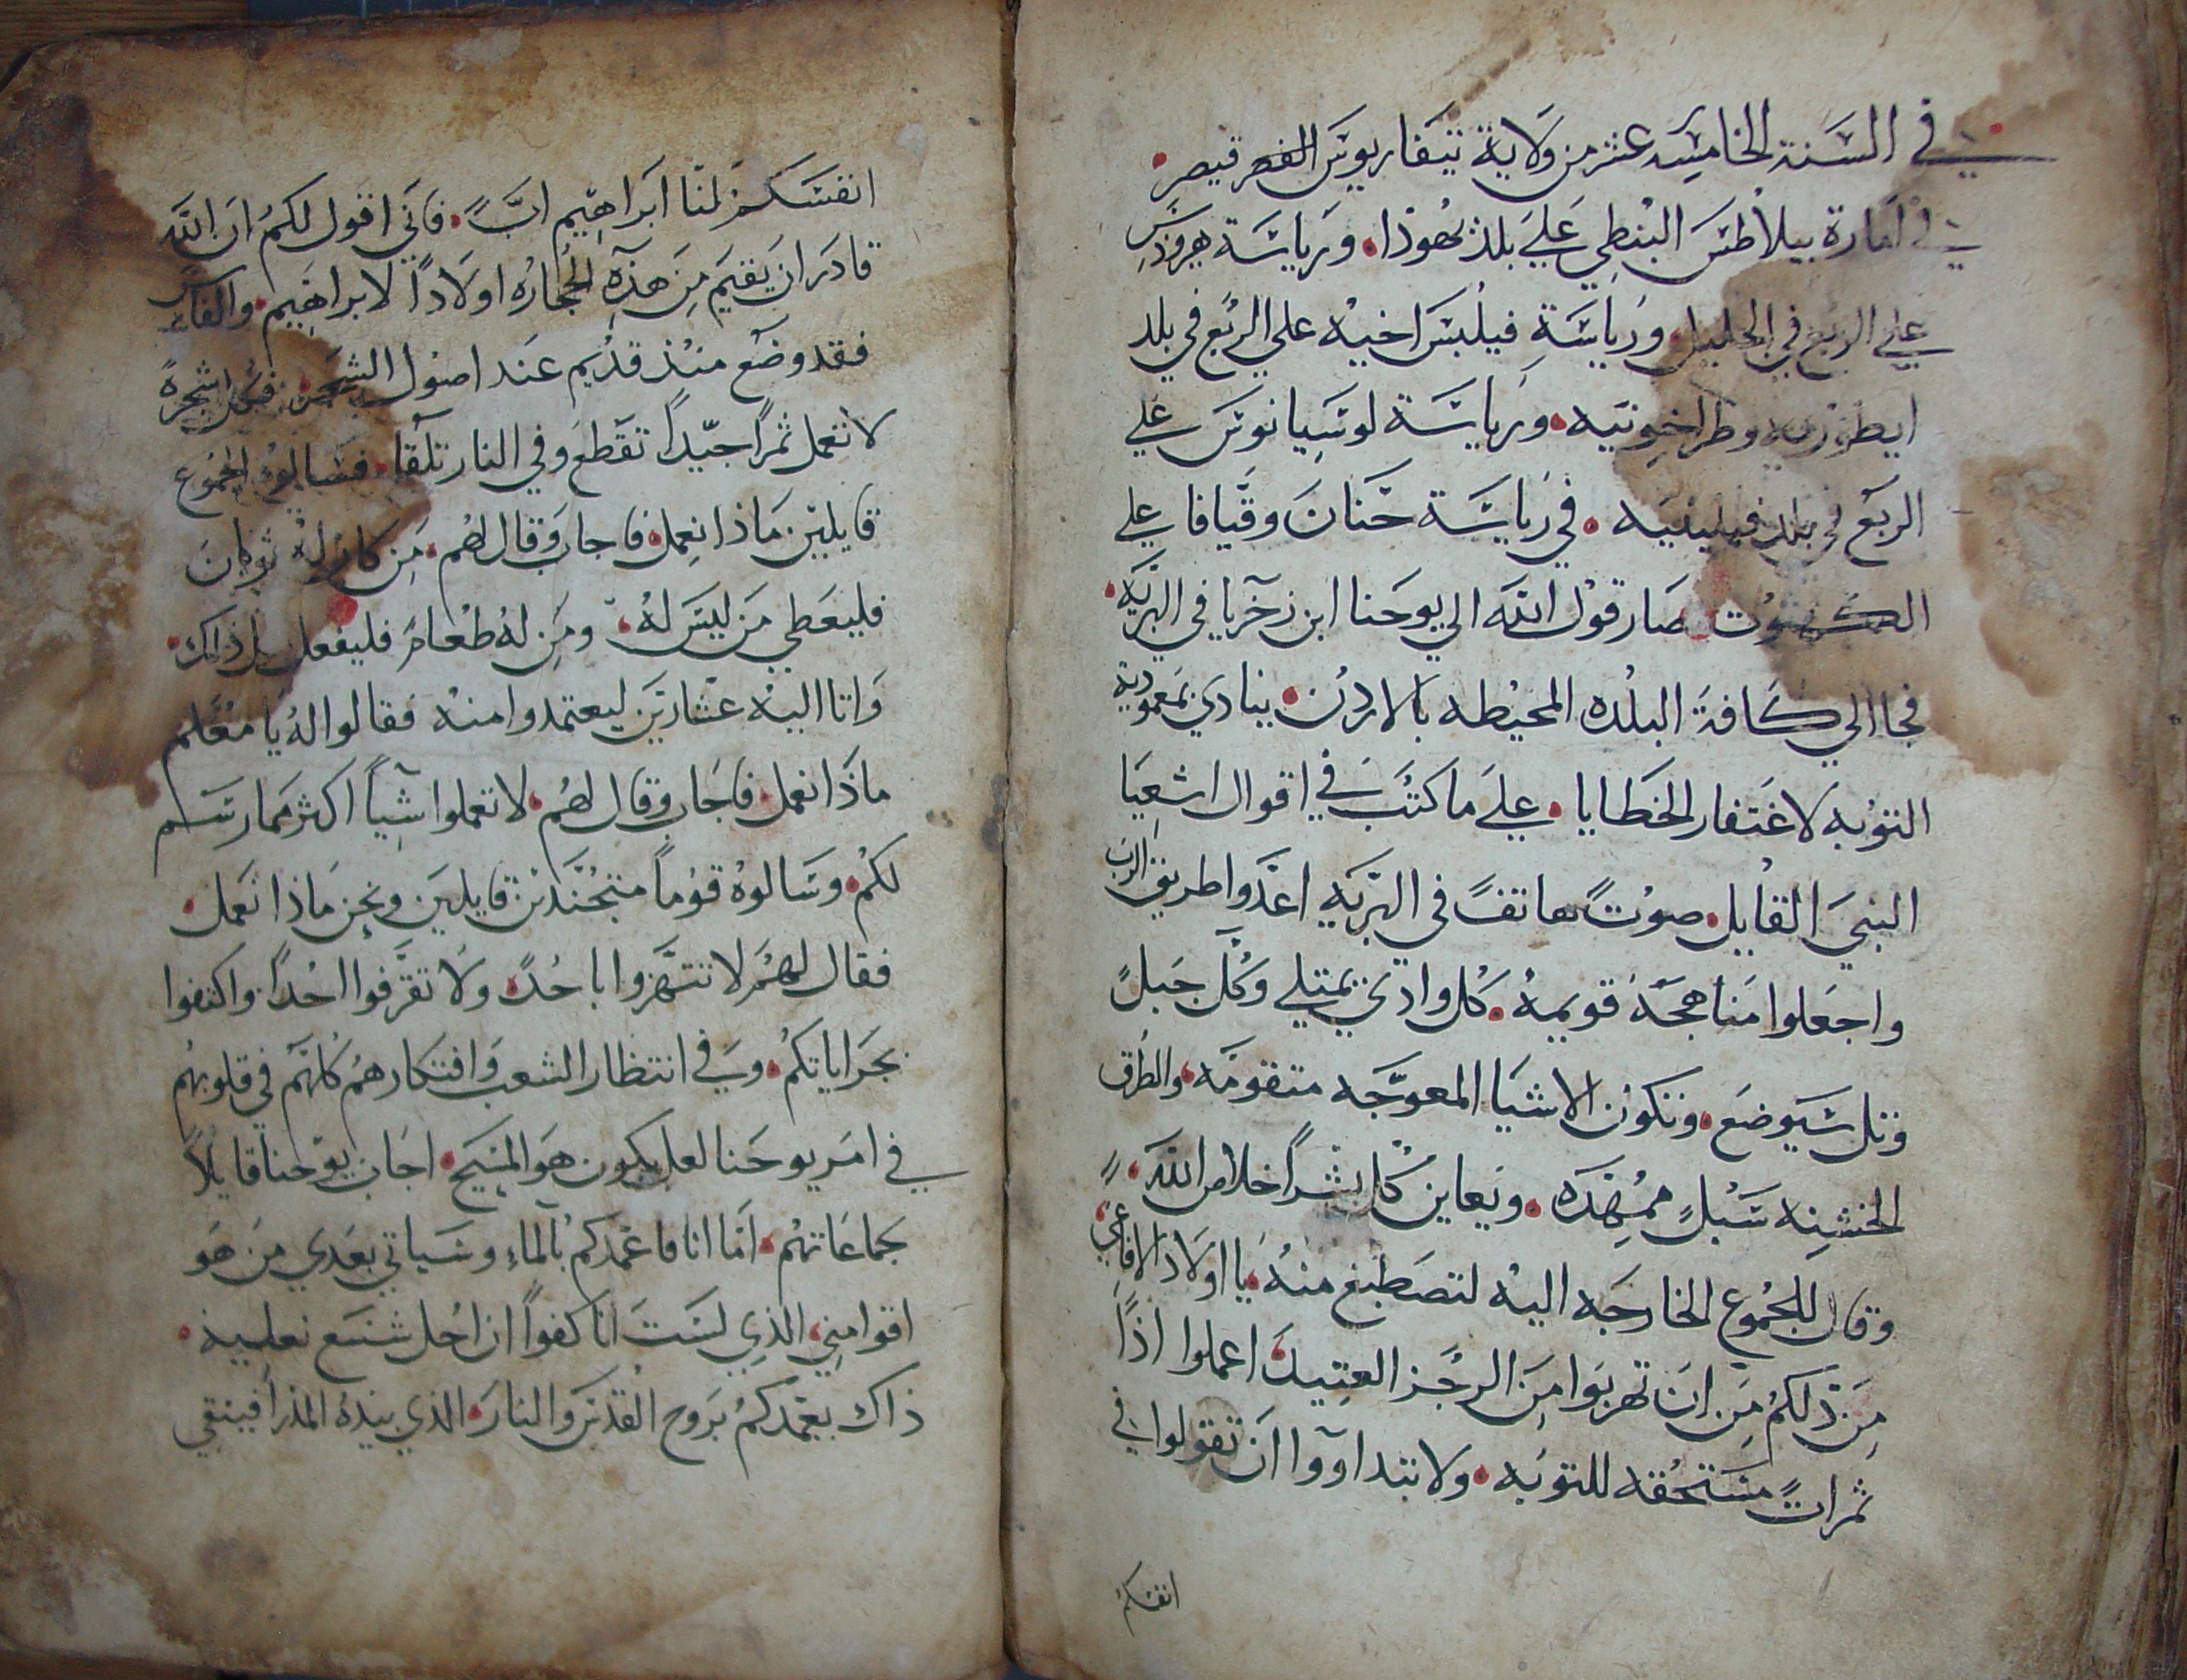 في السنة الخامسه عشر من ولاية تيقاريوس القصر قيصر
في امارة بيلاطس البنطي علي بلد يهوذا. ورياسة هيرودس
علي الربع في الجليل. ورياسة فيلبس اخيه علي الربع في بلد
ايطوريه وطراخونيه. ورياسة لوسيانوس علي
الربع في بلد فيلينيه. في رياسة حنان وقيافا علي
الكهنوت صار قول الله الي يوحنا ابن زخريا في البريه.
فجا الي كافة البلده المحيطه بالاردن. ينادي بمعمودية
التوبه لاغتفار الخطايا. علي ما كتب في اقوال اشعيا
النبي القايل. صوت هاتف في البريه اعدوا طريق الرب
واجعلوا مناهجه قويمه. كل وادي يمتلي وكل جبل
وتل سيوضع. وتكون الاشيا المعوجه متقومه. والطرق
الخشنه سبل ممهده. ويعاين كل بشرا خلاص الله.
وقال للجموع الخارجه اليه لتصطبغ منه. يا اولاد الافاعي.
من دلكم من ان تهربوا من الرجز العتيد. اعملوا اذا
ثمرات مستحقه للتوبه. ولا تبتدا ووا ان تقولوا في
انفسكم
انفسكم لنا ابراهيم اب. فاني اقول لكم ان الله
قادر ان يقيم من هذه الحجاره اولادا لابراهيم. والفاس
فقد وضع منذ قديم عند اصول الشجر. فكل شجرة
لا تعمل ثمرا جيدا تقطع وفي النار تلقا. فسالوه الجموع
قايلين ماذا نعمل. فاجاب وقال لهم. من كان له ثوبان
فليعطي من ليس له. ومن له طعام فليفعل كذاك.
واتا اليه عشارين ليعتمدوا منه فقالوا له يا معلم
ماذا نعمل. فاجاب وقال لهم. لا تعملوا شيا اكثر مما رسم
لكم. وسالوه قوما متجندين قايلين ونحن ماذا نعمل.
فقال لهم لا تنتهزوا باحد. ولا تقرفوا احدا. واكتفوا
بجراياتكم. وفي انتظار الشعب وافتكارهم كلهم في قلوبهم
في امر يوحنا لعل يكون هو المسيح. اجاب يوحنا قايلا
لجماعاتهم. اما انا فاعمدكم بالماء وسياتي بعدي من هو
اقوا مني. الذي لست انا كفوا ان احل شسع نعليه.
ذاك يعمدكم بروح القدس والنار. الذي بيده المذرا فينقي